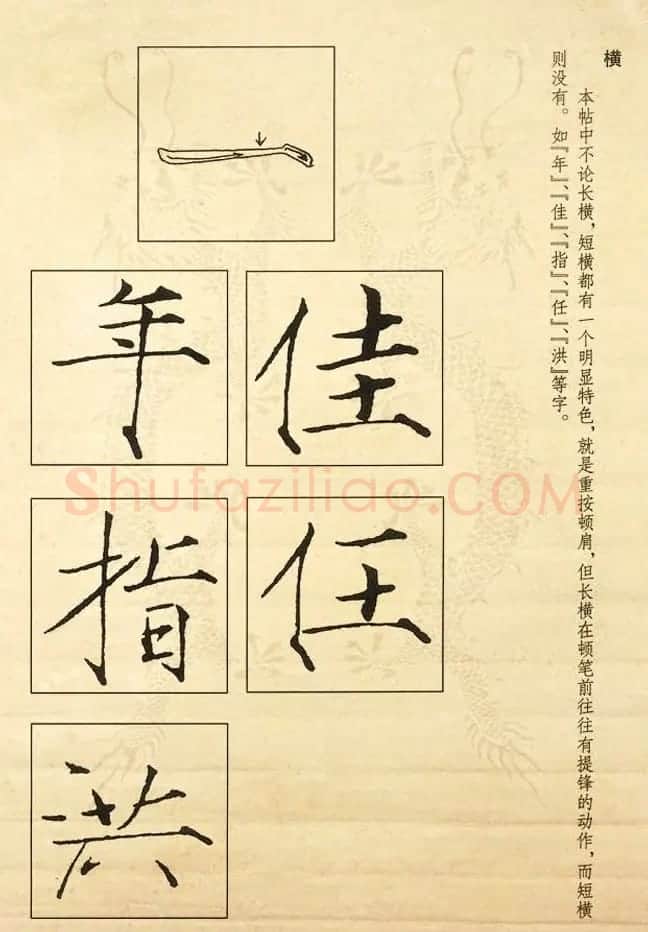 横
本帖中不论长横，短横都有一个明显特色，就是重按顿肩，但长横在顿笔前往往有提锋的动作，而短横
则没有。如『年』、『佳』、『指』、『任』、『洪』等字。
一
年 佳
指 任
洪
Shufaziliao.COM